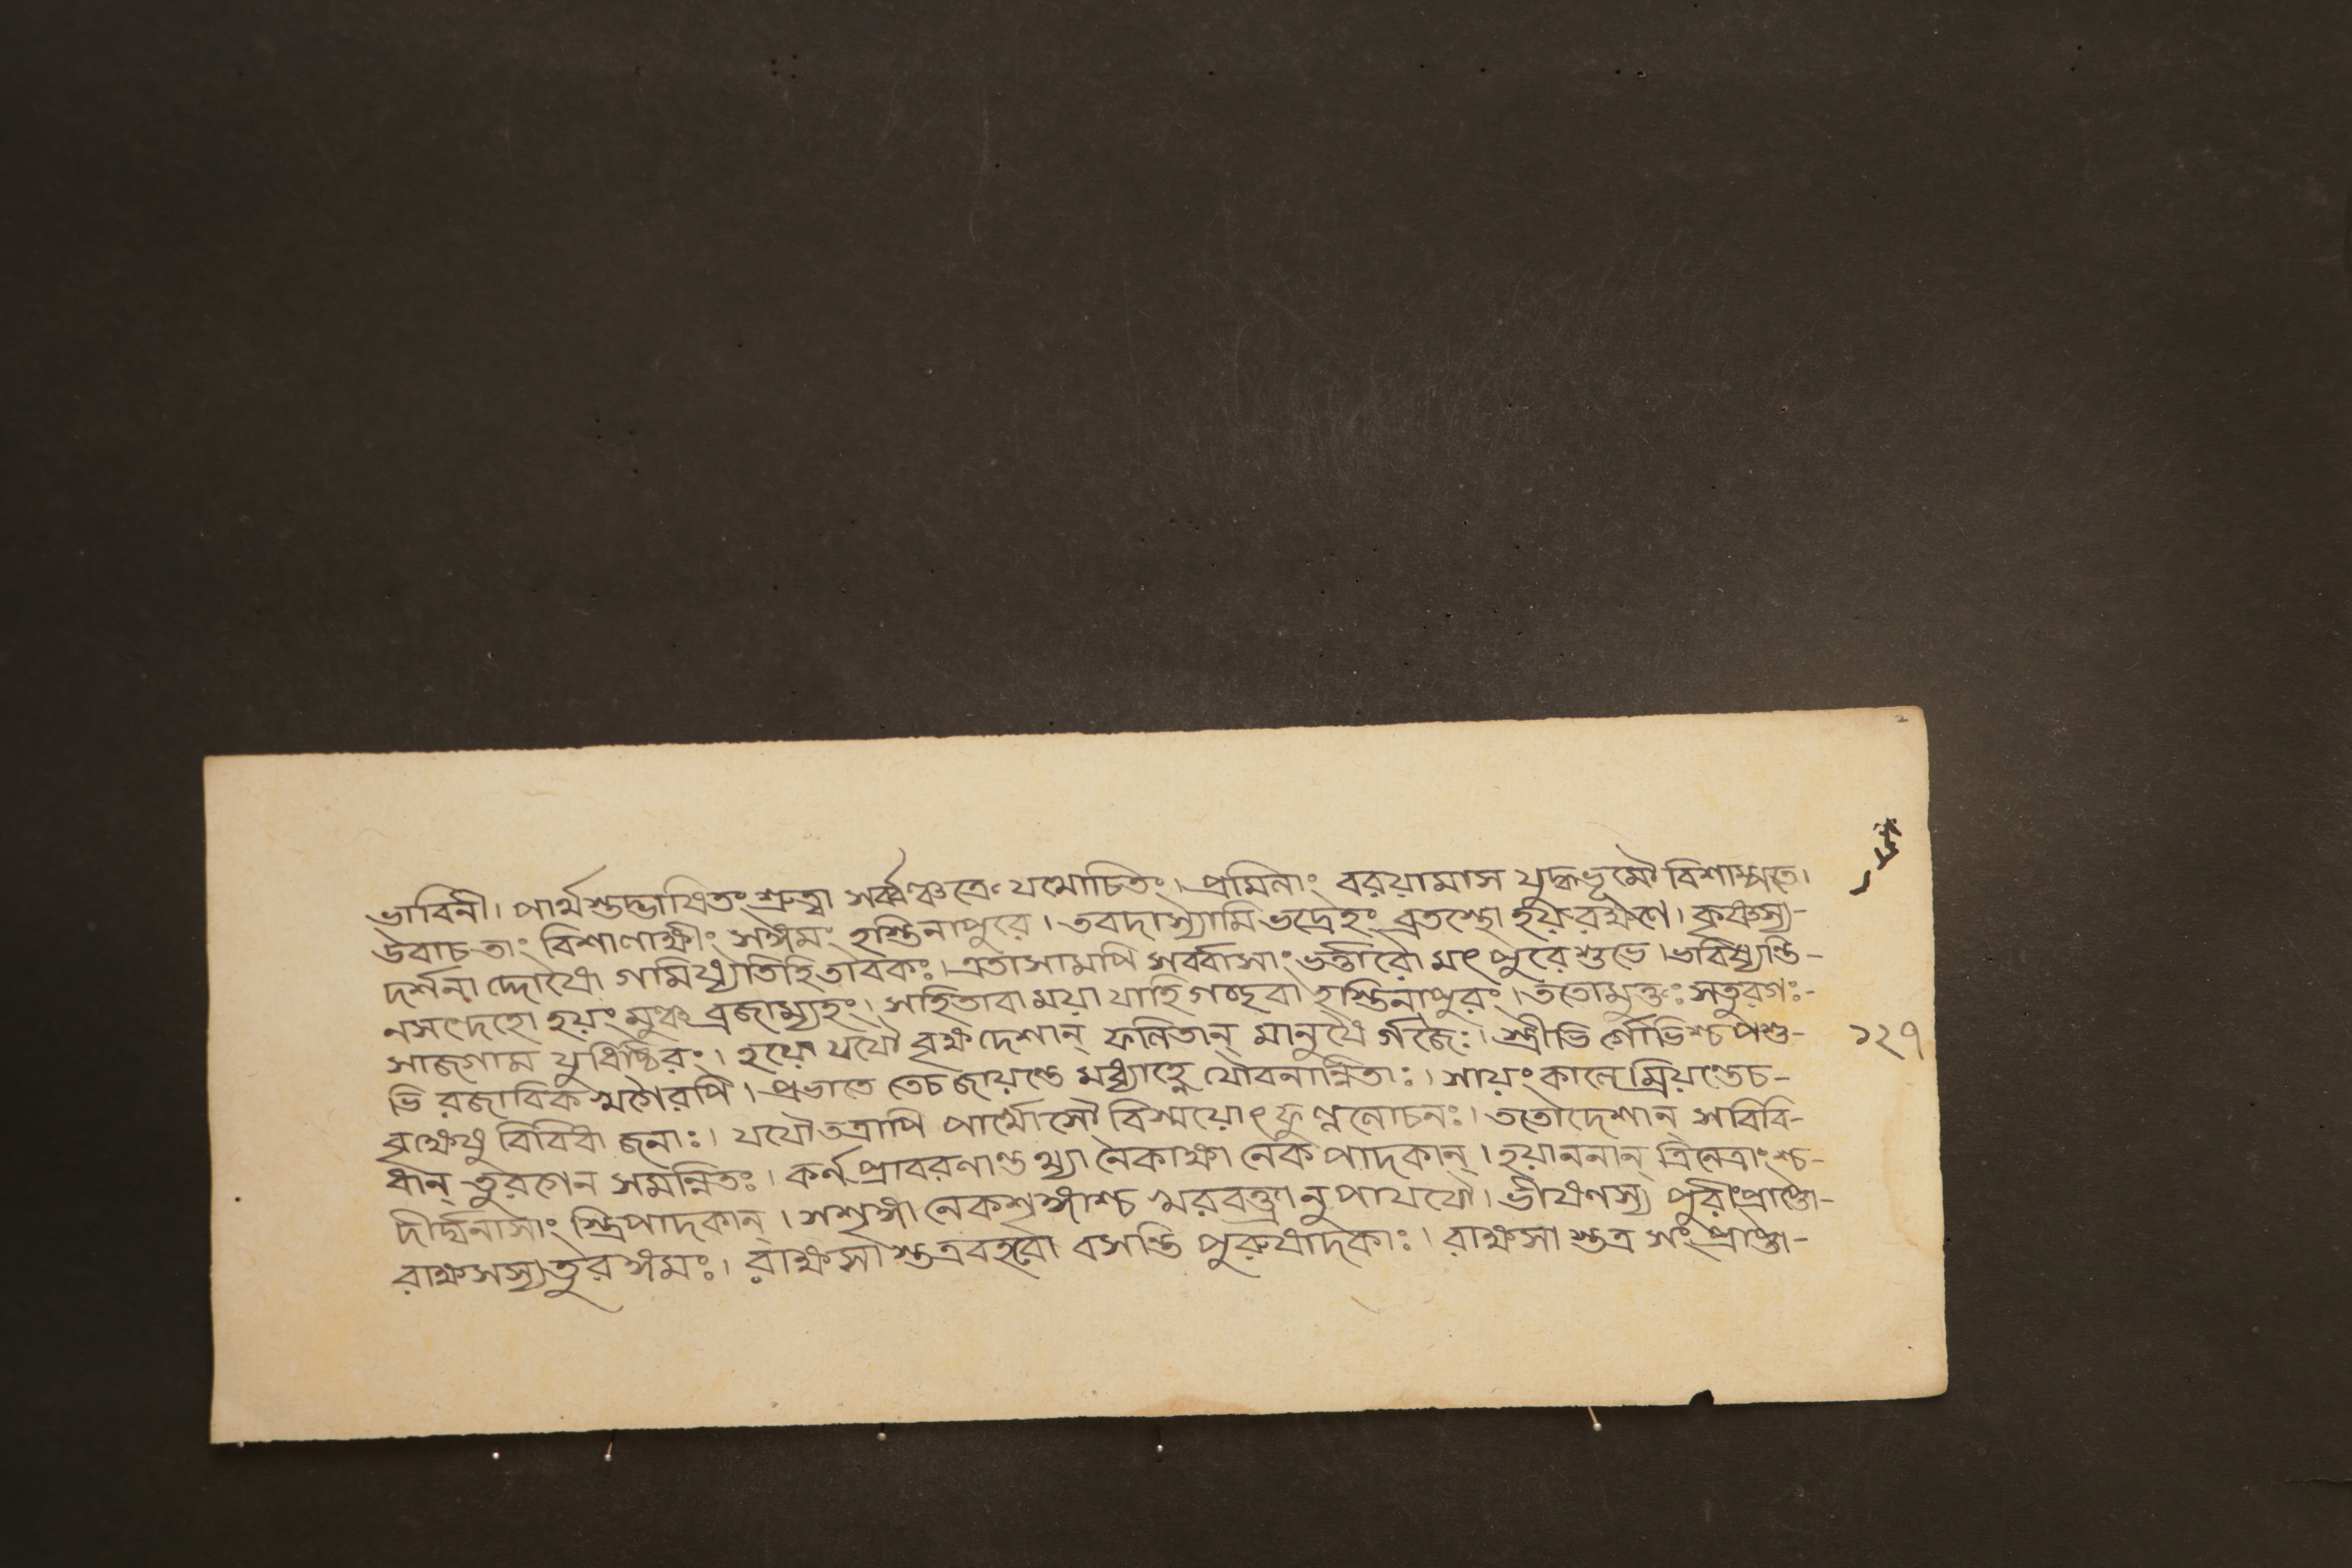 ভাবিনী। পার্থস্তদ্ভাষিতং শ্রুত্বা সর্ব্বঞ্চক্রে যথোচিতং। প্রমিলাং বরয়ামাস যুদ্ধভূমৌ বিশাম্পতে।
উবাচ তাং বিশালাক্ষীং সঙ্গমং হস্তিনাপুরে। তবদাস্যামি ভদ্রেহং ব্রতস্থো হয়রক্ষণে। কৃষ্ণস্য-
দর্শনা দ্দোষো গমিষ্যতিহিতাবকঃ। এতাসামপি সর্ব্বাসাং ভর্ত্তারো মৎ পুরে শুভে। ভবিষ্যন্তি-
নসংদেহো হয়ং মুঞ্চ ব্রজাম্যহং। সহিতাবা ময়া যাহি গচ্ছবা হস্তিনাপুরং। ততোমুক্তঃ সতুরগঃ-
সাজগাম যুধিষ্ঠিরং। হয়ো যযৌ বৃক্ষ দেশান্ ফলিতান্ মানুষৈ র্গজৈঃ। স্ত্রীভি র্গোভিশ্চ পশু-
ভি রজাবিক মৃগৈরপি। প্রভাতে তেচ জায়ন্তে মধ্যাহ্নে যৌবনান্বিতাঃ। সায়ং কালে ম্রিয়ন্তেচ-
বৃক্ষেষু বিবিধা জনাঃ। যযৌ তত্রাপি পার্থোসৌ বিস্ময়োৎ ফুল্ললোচনঃ। ততোদেশান্ সবিবি-
ধান্ তুরগেন সমন্বিতঃ। কর্ণ প্রাবরণাস্তথ্যা নেকাক্ষা নেক পাদকান্। হয়াননান্ ত্রিনেত্রাংশ্চ-
দীর্ঘনাসাং স্ত্রিপাদকান্। সশৃঙ্গা নেকশৃঙ্গাশ্চ খরবক্ত্রা নু পাযযৌ। ভীষণস্য পুরীংপ্রাপ্তো-
রাক্ষসস্য তুরঙ্গমঃ। রাক্ষসা স্তত্রবহবো বসন্তি পুরুষাদকাঃ। রাক্ষসা স্তত্র সংপ্রাপ্তা-
১২৭